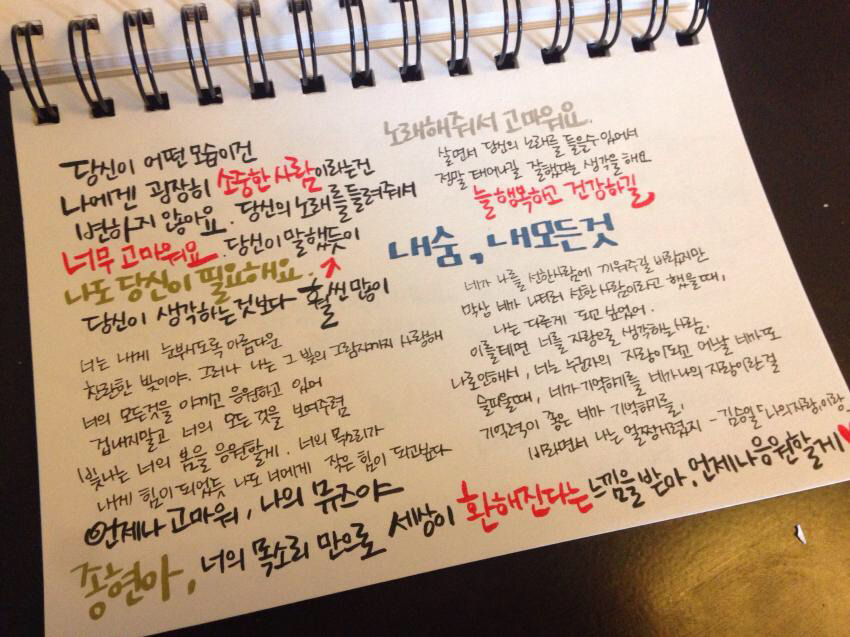 당신이 어떤 모습이건
나에겐 굉장히 소중한 사람이라는건
변하지 않아요. 당신의 노래를 들려주셔서
너무 고마워요. 당신이 말했듯이
나도 당신이 필요해요.
당신이 생각하는것보다 훨씬 많이
너는 내게 눈부시도록 아름다운
찬란한 빛이야. 그러나 나는 그 빛의 그림자까지 사랑해
너의 모든것을 아끼고 응원하고 있어
겁내지말고 너의 모든 것을 보여주렴
빛나는 너의 봄을 응원할게. 너의 목소리가
내게 힘이 되었듯 나도 너에게 작은 힘이 되고싶다
언제나 고마워, 나의 뮤즈야
종현아, 너의 목소리 만으로 세상이 환해진다는 느낌을 받아, 언제나 응원할게♥
노래해줘서 고마워요.
살면서 당신의 노래를 들을수 있어서
정말 태어나길 잘했다는 생각을 해요
늘 행복하고 건강하길
내 숨, 내 모든것
네가 나를 선한사람에 끼워주길 바랐지만
막상 네가 나더러 선한 사람이라고 했을때,
나는 다른게 되고 싶었어.
이를테면 너를 자랑으로 생각하는 사람.
나로인해서, 너는 누군가의 자랑이 되고 어느날 네가 또
슬퍼할때, 네가 기억하기를 네가 나의 자랑이란걸
기억력이 좋은 네가 기억하기를,
바라면서 나는 얼쩡거렸지 - 김승일「나의 자랑 이랑